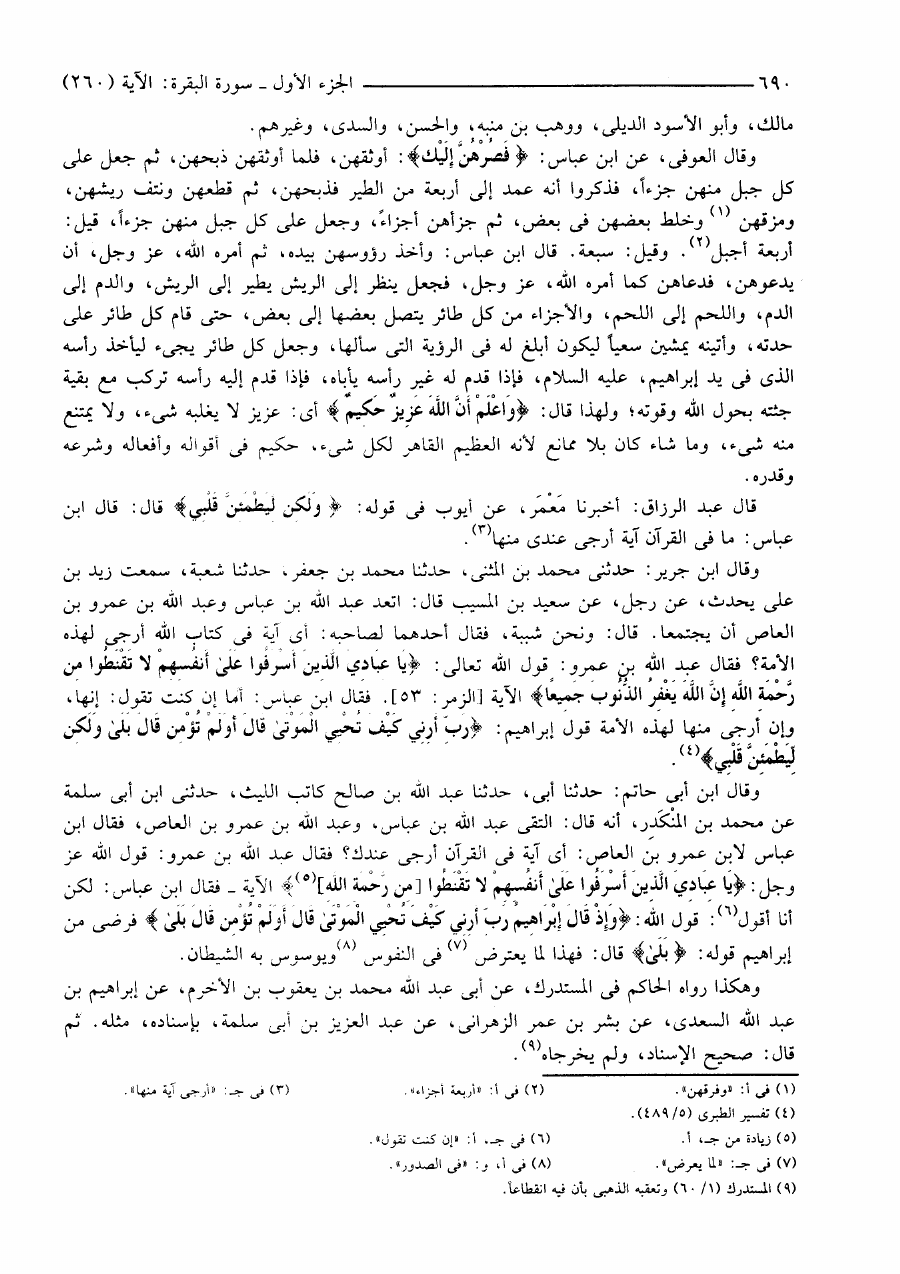 ٦٩٠ ـــــــ الجزء الأول ـ سورة البقرة: الآية (٢٦٠)
مالك، وأبو الأسود الديلى، ووهب بن منبه، والحسن، والسدى، وغيرهم.
وقال العوفى، عن ابن عباس: ﴿ فَصُرْهُنَّ إِلَيْكَ﴾: أوثقهن، فلما أوثقهن ذبحهن، ثم جعل على
كل جبل منهن جزءاً، فذكروا أنه عمد إلى أربعة من الطير فذبحهن، ثم قطعهن ونتف ريشهن،
ومزقهن (١) وخلط بعضهن فى بعض، ثم جزأهن أجزاءً، وجعل على كل جبل منهن جزءاً، قيل:
أربعة أجبل(٢). وقيل: سبعة. قال ابن عباس: وأخذ رؤوسهن بيده، ثم أمره الله، عز وجل، أن
يدعوهن، فدعاهن كما أمره الله، عز وجل، فجعل ينظر إلى الريش يطير إلى الريش، والدم إلى
الدم، واللحم إلى اللحم، والأجزاء من كل طائر يتصل بعضها إلى بعض، حتى قام كل طائر على
حدته، وأتينه يمشين سعياً ليكون أبلغ له فى الرؤية التى سألها، وجعل كل طائر يجىء ليأخذ رأسه
الذى فى يد إبراهيم، عليه السلام، فإذا قدم له غير رأسه يأباه، فإذا قدم إليه رأسه تركب مع بقية
جثته بحول الله وقوته؛ ولهذا قال: ﴿وَاعْلَمْ أَنَّ اللَّهَ عَزِيزٌ حَكِيمٌ ﴾ أى: عزيز لا يغلبه شىء، ولا يمتنع
منه شىء، وما شاء كان بلا ممانع لأنه العظيم القاهر لكل شىء، حكيم فى أقواله وأفعاله وشرعه
وقدره.
قال عبد الرزاق: أخبرنا مَعْمَر، عن أيوب فى قوله: ﴿ وَلَكِن لِّيَطْمَئِنَّ قَلْبِي﴾ قال: قال ابن
عباس: ما فى القرآن آية أرجى عندى منها(٣).
وقال ابن جرير: حدثنى محمد بن المثنى، حدثنا محمد بن جعفر، حدثنا شعبة، سمعت زيد بن
على يحدث، عن رجل، عن سعيد بن المسيب قال: اتعد عبد الله بن عباس وعبد الله بن عمرو بن
العاص أن يجتمعا. قال: ونحن شببة، فقال أحدهما لصاحبه: أى آية فى كتاب الله أرجى لهذه
الأمة؟ فقال عبد الله بن عمرو: قول الله تعالى: ﴿يَا عِبَادِيَ الَّذِينَ أَسْرَفُوا عَلَىٰ أَنفُسِهِمْ لا تَقْنَطُوا مِن
رَّحْمَةِ اللَّهِ إِنَّ اللَّهَ يَغْفِرُ الذُّنُوبَ جَمِيعًا﴾ الآية [الزمر: ٥٣]. فقال ابن عباس: أما إن كنت تقول: إنها،
وإن أرجى منها لهذه الأمة قول إبراهيم: ﴿رَبِّ أَرِنِي كَيْفَ تُحْيِي الْمَوْتَىٰ قَالَ أَوَلَمْ تُؤْمِن قَالَ بَلَىٰ وَلَكِن
لِّيَطْمَئِنَّ قَلْبِي﴾(٤).
وقال ابن أبى حاتم: حدثنا أبى، حدثنا عبد الله بن صالح كاتب الليث، حدثنى ابن أبى سلمة
عن محمد بن المنْكَدِر، أنه قال: التقى عبد الله بن عباس، وعبد الله بن عمرو بن العاص، فقال ابن
عباس لابن عمرو بن العاص: أى آية فى القرآن أرجى عندك؟ فقال عبد الله بن عمرو: قول الله عز
وجل: ﴿يَا عِبَادِيَ الَّذِينَ أَسْرَفُوا عَلَىٰ أَنفُسِهِمْ لا تَقْنَطُوا [مِن رَّحْمَةِ اللَّه](٥)﴾ الآية ـ فقال ابن عباس: لكن
أنا أقول(٦): قول الله: ﴿وَإِذْ قَالَ إِبْرَاهِيمُ رَبِّ أَرِنِي كَيْفَ تُحْيِي الْمَوْتَىٰ قَالَ أَوَلَمْ تُؤْمِن قَالَ بَلَىٰ ﴾ فرضى من
إبراهيم قوله: ﴿ بَلَىٰ﴾ قال: فهذا لما يعترض (٧) فى النفوس (٨) ويوسوس به الشيطان.
وهكذا رواه الحاكم فى المستدرك، عن أبى عبد الله محمد بن يعقوب بن الأخرم، عن إبراهيم بن
عبد الله السعدى، عن بشر بن عمر الزهرانى، عن عبد العزيز بن أبى سلمة، بإسناده، مثله. ثم
قال: صحيح الإسناد، ولم يخرجاه(٩).
(١) فى أ: «وفرقهن». (٢) فى أ: «أربعة أجزاء». (٣) فى جـ: «أرجى آية منها».
(٤) تفسير الطبرى (٥/ ٤٨٩).
(٥) زيادة من جـ، أ. (٦) فى جـ، أ: «إن كنت تقول».
(٧) فى جـ: «لما يعرض». (٨) فى أ، و: «فى الصدور».
(٩) المستدرك (١/ ٦٠) وتعقبه الذهبى بأن فيه انقطاعاً.